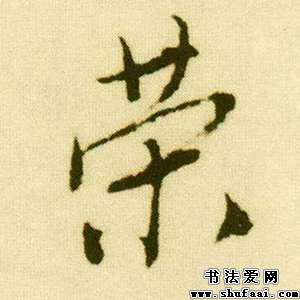 荣
书法爱网
www.shufaai.com